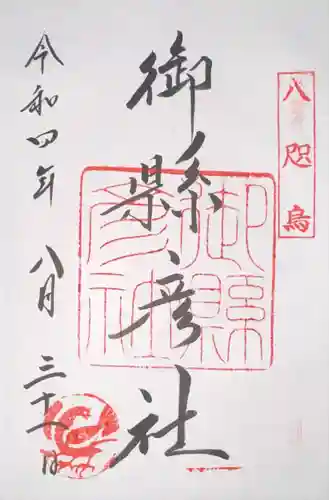 八咫烏
御縣彦社
御縣彦社
令和四年八月三十一日